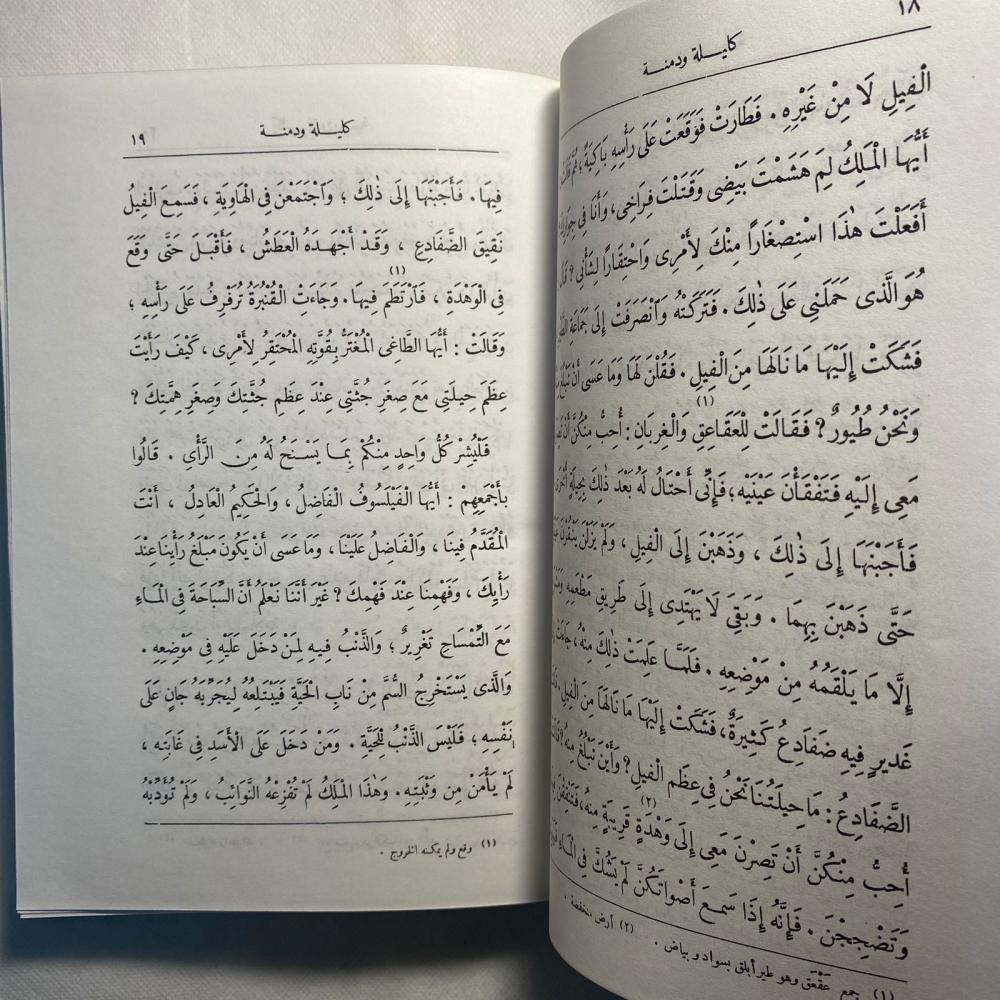 ١٨
كليلة ودمنة
الْفِيلِ لَا مِنْ غَيْرِهِ . فَطَارَتْ فَوَقَعَتْ عَلَى رَأْسِهِ بَاكِيَةً ؛ ثُمَّ قَالَتْ
أَيُّهَا الْمَلِكُ لِمَ هَشَمْتَ بَيْضِى وَقَتَلْتَ فِرَاخِى، وَأَنَا فِى
أَفَعَلْتَ هٰذَا اسْتِصْغَاراً مِنْكَ لِأَمْرِى وَاحْتِقَاراً لِشَأْنِى ؟
هُوَ الَّذى حَمَلَنِى عَلَى ذٰلِكَ . فَتَرَكَتْهُ وَانْصَرَفَتْ إِلَى جَمَاعَةِ
فَشَكَتْ إِلَيْهَا مَا نَالَهَا مِنَ الْفِيلِ . فَقُلْنَ لَهَا وَمَا عَسَى أَنْ نَبْلُغَ
وَنَحْنُ طُيُورٌ ؟ فَقَالَتْ لِلْعَقَاعِقِ (١) وَالْغِرْبَانِ : أُحِبُّ مِنْكُنَّ أَنْ
مَعِى إِلَيْهِ فَتَفْقَأْنَ عَيْنَيْهِ ؛ فَإِنِّى أَحْتَالُ لَهُ بَعْدَ ذٰلِكَ بِحِيلَةٍ أُخْرَى
فَأَجَبْنَهَا إِلَى ذٰلِكَ ، وَذَهَبْنَ إِلَى الْفِيلِ ، وَلَمْ يَزَلْنَ يَنْقُرْنَ
حَتَّى ذَهَبْنَ بِهِمَا . وَبَقِىَ لَا يَهْتَدِى إِلَى طَرِيقِ مَطْعَمِهِ
إِلَّا مَا يَلْقَمُهُ مِنْ مَوْضِعِهِ . فَلَمَّا عَلِمَتْ ذٰلِكَ مِنْهُ ، جَاءَتْ
غَدِيرٍ فِيهِ ضَفَادِعُ كَثِيرَةٌ، فَشَكَتْ إِلَيْهَا مَا نَالَهَا مِنَ الْفِيلِ .
الضَّفَادِعُ : مَا حِيلَتُنَا نَحْنُ فِى عِظَمِ الْفِيلِ ؟ وَأَيْنَ نَبْلُغُ مِنْهُ ؟
أُحِبُّ مِنْكُنَّ أَنْ تَصِرْنَ مَعِى إِلَى وَهْدَةٍ (٢) قَرِيبَةٍ مِنْهُ، فَتَنْقِقْنَ
وَتَضْجِجْنَ . فَإِنَّهُ إِذَا سَمِعَ أَصْوَاتَكُنَّ لَمْ يَشُكَّ فِى الْمَاءِ
(١) جمع عَقْعَق وهو طير أبلق بسواد وبياض . (٢) أرض منخفضة .
١٩
كليلة ودمنة
فِيهَا . فَأَجَبْنَهَا إِلَى ذٰلِكَ ؛ وَاجْتَمَعْنَ فِى الْهَاوِيَةِ ، فَسَمِعَ الْفِيلُ
نَقِيقَ الضَّفَادِعِ ، وَقَدْ أَجْهَدَهُ الْعَطَشُ ، فَأَقْبَلَ حَتَّى وَقَعَ
فِى الْوَهْدَةِ ، فَارْتَطَمَ (١) فِيهَا . وَجَاءَتِ الْقُنْبُرَةُ تُرَفْرِفُ عَلَى رَأْسِهِ ؛
وَقَالَتْ : أَيُّهَا الطَّاغِى الْمُغْتَرُّ بِقُوَّتِهِ الْمُحْتَقِرُ لِأَمْرِى ، كَيْفَ رَأَيْتَ
عِظَمَ حِيلَتِى مَعَ صِغَرِ جُثَّتِى عِنْدَ عِظَمِ جُثَّتِكَ وَصِغَرِ هِمَّتِكَ ؟
فَلْيُشِرْ كُلُّ وَاحِدٍ مِنْكُمْ بِمَا يَسْنَحُ لَهُ مِنَ الرَّأْىِ . قَالُوا
بِأَجْمَعِهِمْ : أَيُّهَا الْفَيْلَسُوفُ الْفَاضِلُ ، وَالْحَكِيمُ الْعَادِلُ ، أَنْتَ
الْمُقَدَّمُ فِينَا ، وَالْفَاضِلُ عَلَيْنَا ، وَمَا عَسَى أَنْ يَكُونَ مَبْلَغُ رَأْيِنَا عِنْدَ
رَأْيِكَ ، وَفَهْمِنَا عِنْدَ فَهْمِكَ ؟ غَيْرَ أَنَّنَا نَعْلَمُ أَنَّ السِّبَاحَةَ فِى الْمَاءِ
مَعَ التِّمْسَاحِ تَغْرِيرٌ ؛ وَالذَّنْبُ فِيهِ لِمَنْ دَخَلَ عَلَيْهِ فِى مَوْضِعِهِ .
وَالَّذِى يَسْتَخْرِجُ السُّمَّ مِنْ نَابِ الْحَيَّةِ فَيَبْتَلِعُهُ لِيُجَرِّبَهُ جَانٍ عَلَى
نَفْسِهِ ؛ فَلَيْسَ الذَّنْبُ لِلْحَيَّةِ . وَمَنْ دَخَلَ عَلَى الْأَسَدِ فِى غَابَتِهِ ،
لَمْ يَأْمَنْ مِنْ وَثْبَتِهِ . وَهٰذَا الْمَلِكُ لَمْ تُفْزِعْهُ النَّوَائِبُ ، وَلَمْ تُؤَدِّبْهُ
(١) وقع ولم يمكنه الخروج .